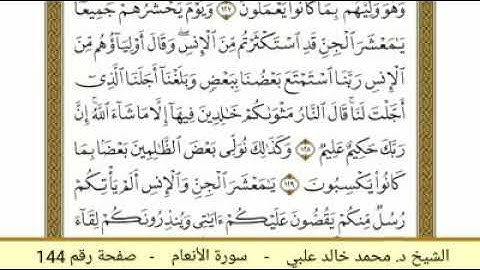 وَهُوَ وَلِيُّهُم بِمَا كَانُوا۟ يَعْمَلُونَ ١٢٧ وَيَوْمَ يَحْشُرُهُمْ جَمِيعًا
يَٰمَعْشَرَ ٱلْجِنِّ قَدِ ٱسْتَكْثَرْتُم مِّنَ ٱلْإِنسِ ۖ وَقَالَ أَوْلِيَآؤُهُم مِّنَ
ٱلْإِنسِ رَبَّنَا ٱسْتَمْتَعَ بَعْضُنَا بِبَعْضٍ وَبَلَغْنَآ أَجَلَنَا ٱلَّذِىٓ
أَجَّلْتَ لَنَا ۚ قَالَ ٱلنَّارُ مَثْوَىٰكُمْ خَٰلِدِينَ فِيهَآ إِلَّا مَا شَآءَ ٱللَّهُ ۗ إِنَّ
رَبَّكَ حَكِيمٌ عَلِيمٌ ١٢٨ وَكَذَٰلِكَ نُوَلِّى بَعْضَ ٱلظَّٰلِمِينَ بَعْضًۢا بِمَا
كَانُوا۟ يَكْسِبُونَ ١٢٩ يَٰمَعْشَرَ ٱلْجِنِّ وَٱلْإِنسِ أَلَمْ يَأْتِكُمْ
رُسُلٌ مِّنكُمْ يَقُصُّونَ عَلَيْكُمْ ءَايَٰتِى وَيُنذِرُونَكُمْ لِقَآءَ
الشيخ د. محمد خالد علبي - سورة الأنعام - صفحة رقم 144